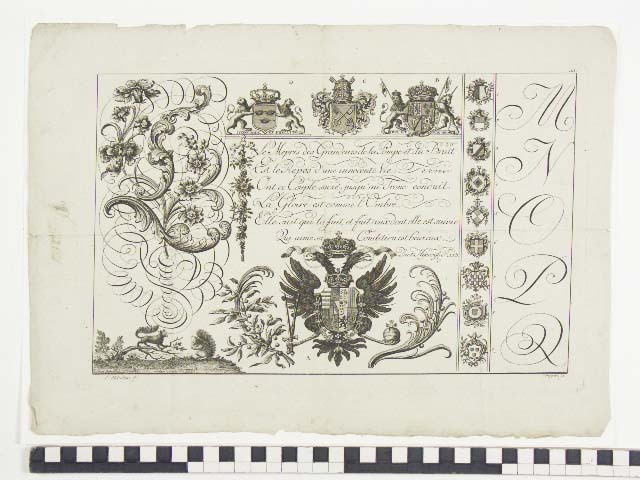 D C B
Le Mepris des Grandeurs de la Pompe et du Bruit
Est le Repos d'une innocente Vie
Ont ce Couple sacré, jusqu'au Trone conduit
La Gloire est comme l'Ombre
Elle suit qui la fuit, et fuit ceux dont elle est suivie
Qui aime sa Condition est heureux
A
M
N
O
P
Q